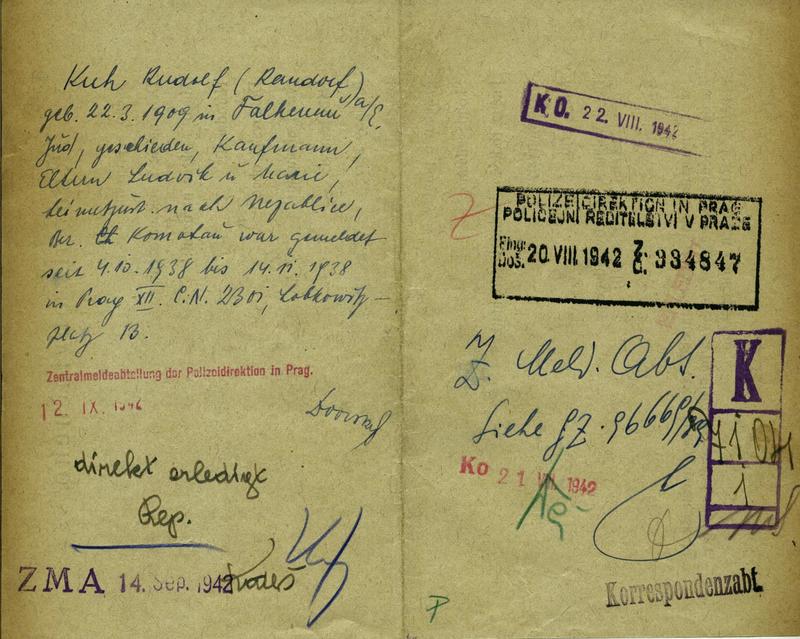 Kuh Rudolf (Randorf)
geb. 22.3.1909 in Falkenau a/E.
Jud, geschieden, Kaufmann,
Eltern Ludvik u Marie,
heimatzust. nach Nezablice,
Bez. Komotau war gemeldet
seit 4.10.1938 bis 14.11.1938
in Prag XII. C.N. 2301, Lobkowitz-
platz 13.
Zentralmeldeabteilung der Polizeidirektion in Prag.
12. IX. 1942
direkt erledigt
Rep.
ZMA 14. Sep. 1942
K.O. 22. VIII. 1942
POLIZEIDIREKTION IN PRAG
POLICEJNÍ ŘEDITELSTVÍ V PRAZE
Eing.
Doš. 20. VIII 1942 Z. Č. 334847
Z. Meld. Abt.
Siehe GZ.
K
Ko 21 VIII. 1942
1
Korrespondenzabt.